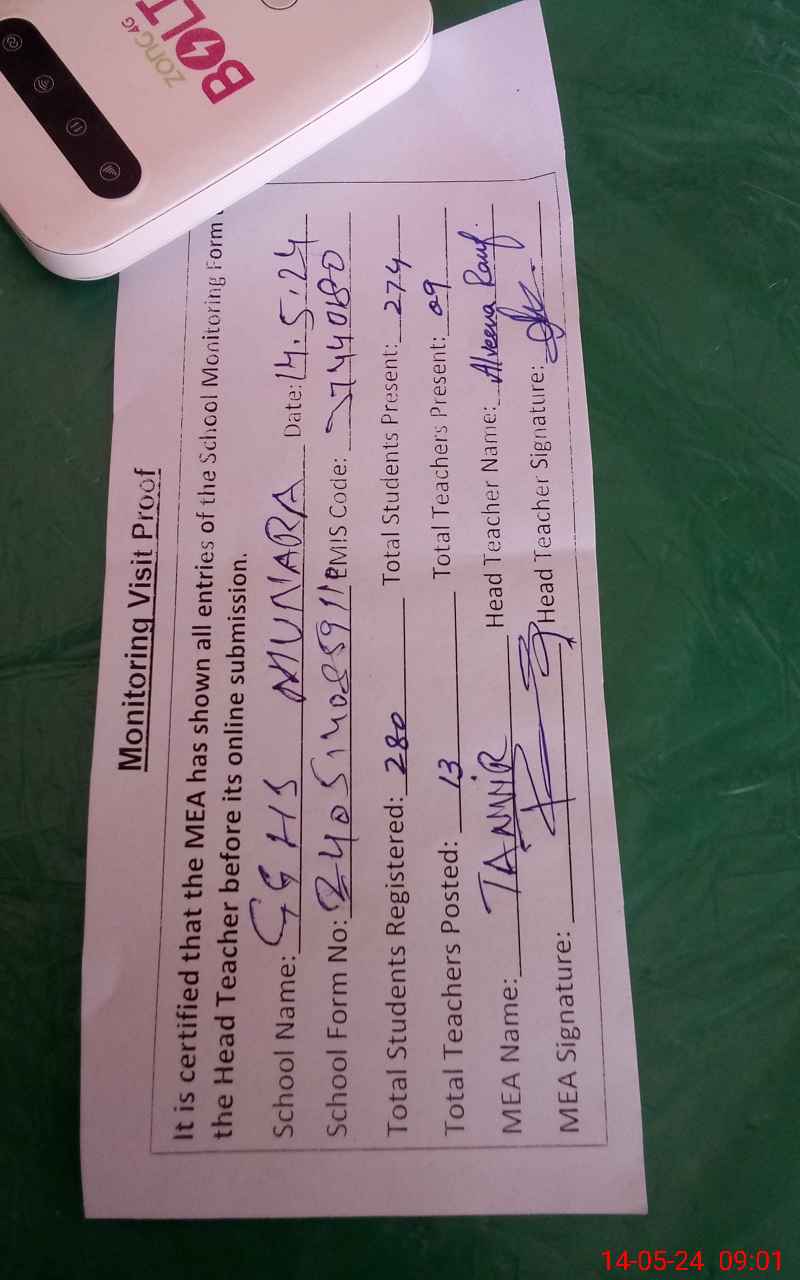 zong 4G
BOLT
Monitoring Visit Proof
It is certified that the MEA has shown all entries of the School Monitoring Form
the Head Teacher before its online submission.
School Name: GGHS MUNARA Date: 14.5.24
School Form No: EMIS Code:
Total Students Registered: 280 Total Students Present: 274
Total Teachers Posted: 13 Total Teachers Present: 09
MEA Name: Head Teacher Name: Alveena Rauf.
MEA Signature: Head Teacher Signature:
14-05-24 09:01